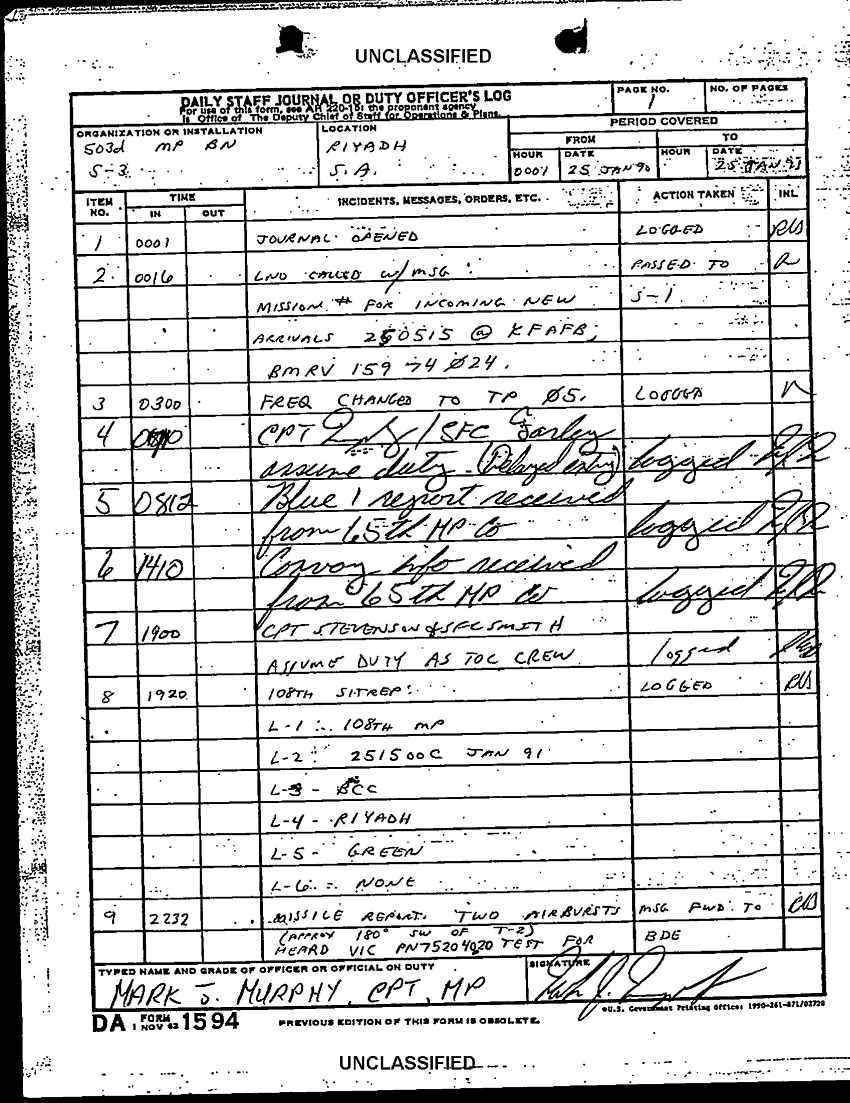 UNCLASSIFIED
DAILY STAFF JOURNAL OR DUTY OFFICER'S LOG
For use of this form, see AR 220-15; the proponent agency
is Office of The Deputy Chief of Staff for Operations & Plans.
PAGE NO.
1
NO. OF PAGES
ORGANIZATION OR INSTALLATION
503d MP BN
S-3
LOCATION
RIYADH
S.A.
PERIOD COVERED
FROM
TO
HOUR
DATE
HOUR
DATE
0001
25 JAN 90
25 JAN 91
ITEM NO.
TIME
IN
OUT
INCIDENTS, MESSAGES, ORDERS, ETC.
ACTION TAKEN
INL
1 0001 JOURNAL OPENED LOGGED RLS
2 0016 LNO CALLED W/MSG: PASSED TO
MISSION # FOR INCOMING NEW S-1
ARRIVALS 250515 @ KFAFB;
BMRV 159 74 Ø24.
3 0300 FREQ CHANGED TO TP Ø5. LOGGED
4 CPT / SFC Farley
assume duty. (Delayed entry) logged
5 0812 Blue 1 report received
from 65th MP Co logged
6 1410 Convoy info received
from 65th MP Co logged
7 1900 CPT STEVENSON & SFC SMITH
ASSUME DUTY AS TOC CREW logged
8 1920 108TH SITREP: LOGGED RLS
L-1: 108TH MP
L-2: 251500C JAN 91
L-3 - BCC
L-4 - RIYADH
L-5 - GREEN
L-6 - NONE
9 2232 MISSILE REPORT. TWO AIRBURSTS MSG FWD TO RLS
(APPROX 180° SW OF T-2)
HEARD VIC PN75204020 TEST FOR BDE
TYPED NAME AND GRADE OF OFFICER OR OFFICIAL ON DUTY
MARK J. MURPHY, CPT, MP
SIGNATURE
DA FORM 1 NOV 62 1594
PREVIOUS EDITION OF THIS FORM IS OBSOLETE.
*U.S. Government Printing Office: 1990-261-871/02728
UNCLASSIFIED